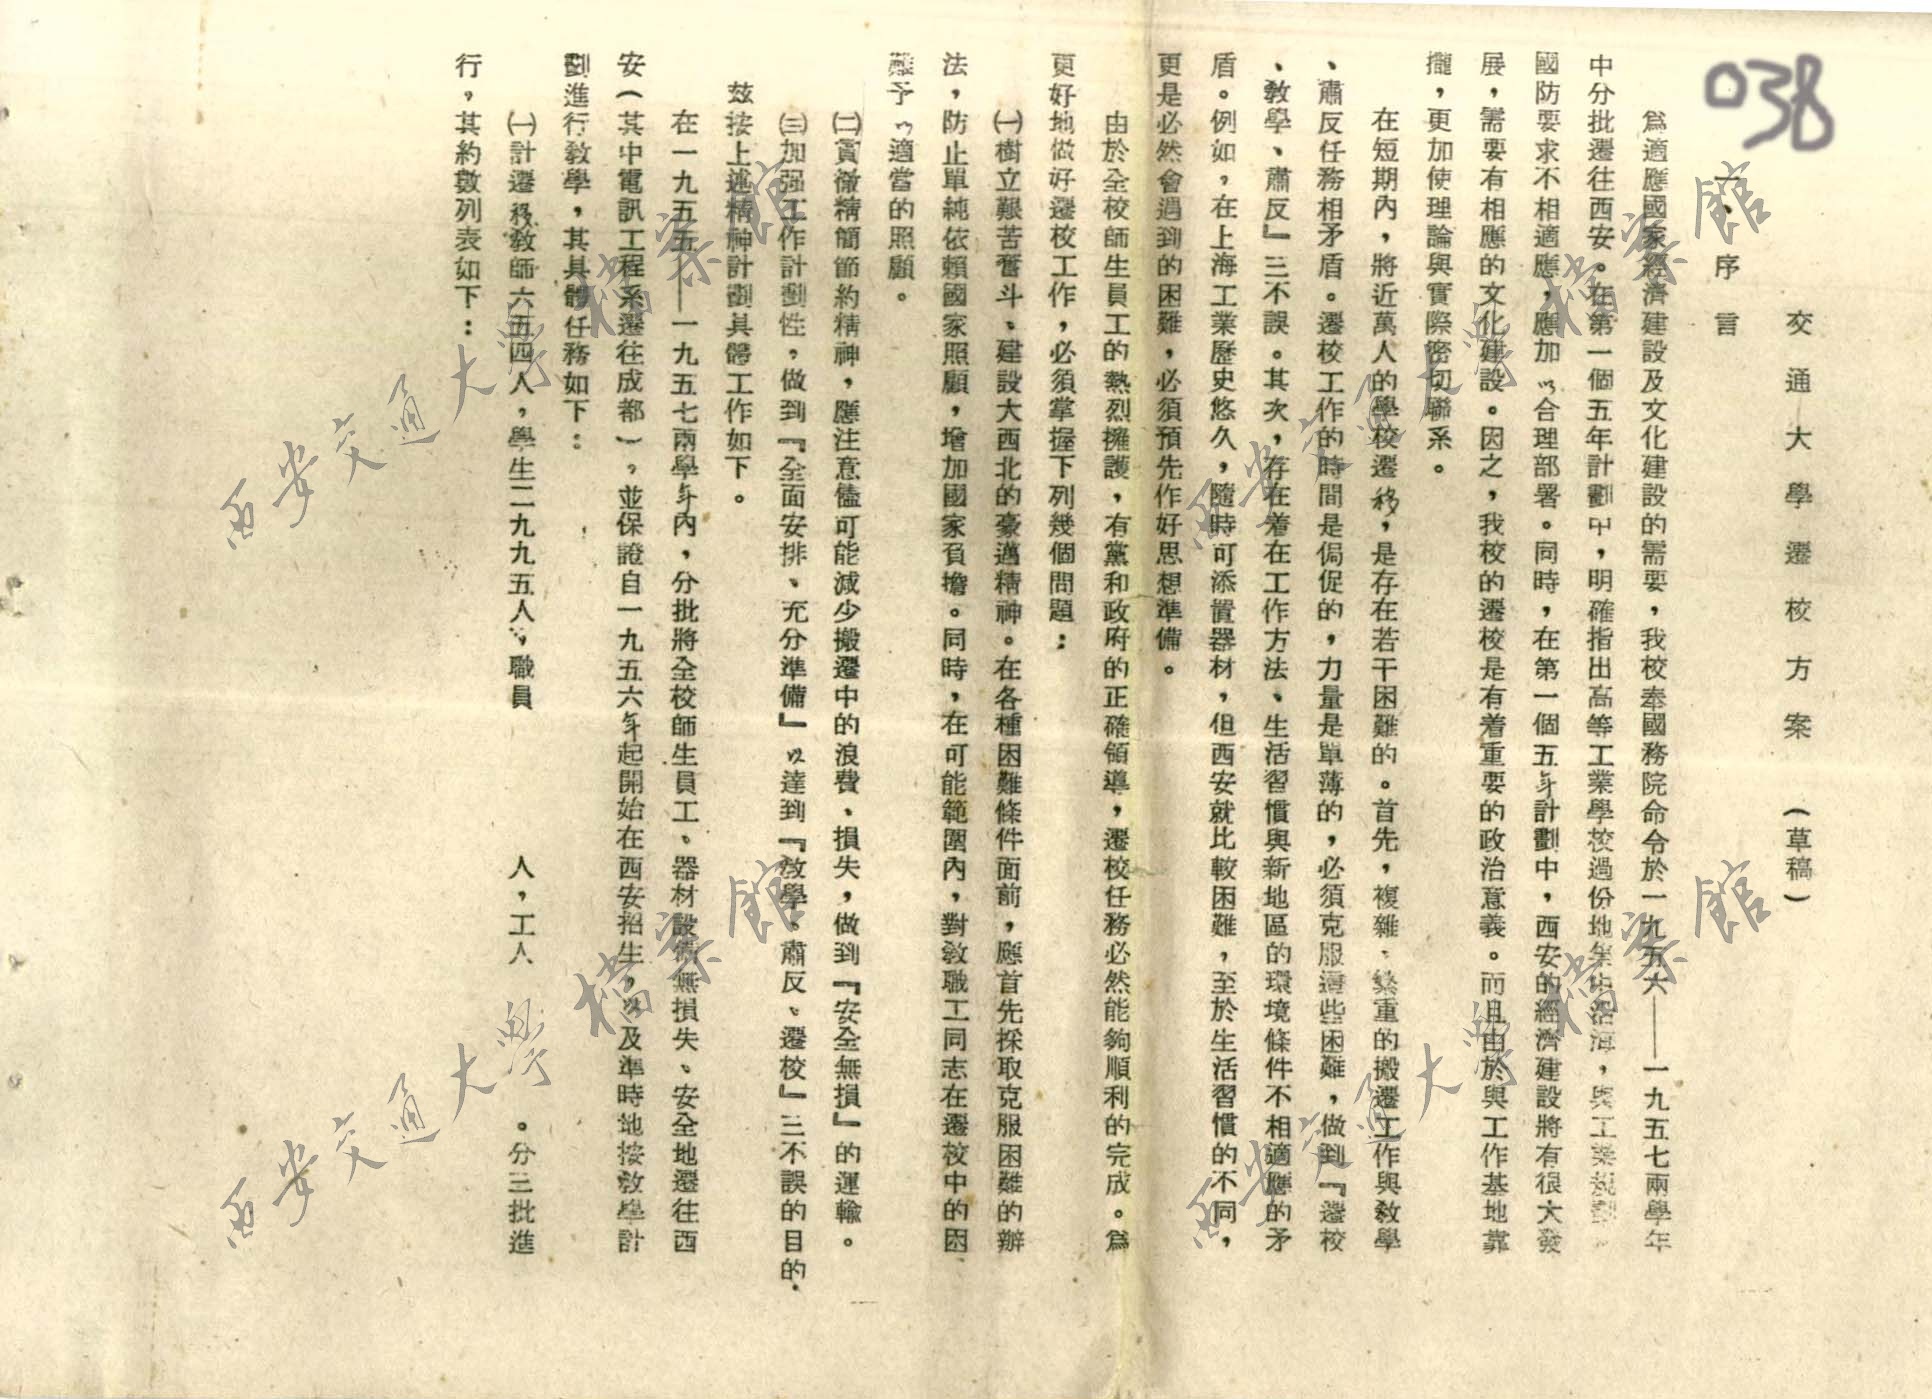 038
交通大學遷校方案　（草稿）
一、序言
爲適應國家經濟建設及文化建設的需要，我校奉國務院命令於一九五六——一九五七兩學年
中分批遷往西安。在第一個五年計劃中，明確指出高等工業學校過份地集中沿海，與工業規劃、
國防要求不相適應，應加以合理部署。同時，在第一個五年計劃中，西安的經濟建設將有很大發
展，需要有相應的文化建設。因之，我校的遷校是有着重要的政治意義。而且由於與工作基地靠
攏，更加使理論與實際密切聯系。
在短期內，將近萬人的學校遷移，是存在若干困難的。首先，複雜、繁重的搬遷工作與敎學
、肅反任務相矛盾。遷校工作的時間是侷促的，力量是單薄的，必須克服這些困難，做到『遷校
、敎學、肅反』三不誤。其次，存在着在工作方法、生活習慣與新地區的環境條件不相適應的矛
盾。例如，在上海工業歷史悠久，隨時可添置器材，但西安就比較困難，至於生活習慣的不同，
更是必然會遇到的困難，必須預先作好思想準備。
由於全校師生員工的熱烈擁護，有黨和政府的正確領導，遷校任務必然能夠順利的完成。爲
更好地做好遷校工作，必須掌握下列幾個問題：
㈠樹立艱苦奮斗、建設大西北的豪邁精神。在各種困難條件面前，應首先採取克服困難的辦
法，防止單純依賴國家照顧，增加國家負擔。同時，在可能範圍內，對敎職工同志在遷校中的困
難予以適當的照顧。
㈡貫徹精簡節約精神，應注意儘可能減少搬遷中的浪費、損失，做到『安全無損』的運輸。
㈢加强工作計劃性，做到『全面安排、充分準備』以達到『敎學、肅反、遷校』三不誤的目的．
茲按上述精神計劃具體工作如下。
在一九五五——一九五七兩學年內，分批將全校師生員工、器材設備無損失、安全地遷往西
安（其中電訊工程系遷往成都），並保證自一九五六年起開始在西安招生，以及準時地按敎學計
劃進行敎學，其具體任務如下：
㈠計遷移敎師六五四人，學生二九九五人，職員　　　人，工人　　　。分三批進
行，其約數列表如下：
西安交通大學檔案館
西安交通大學檔案館
西安交通大學檔案館
西安交通大學檔案館